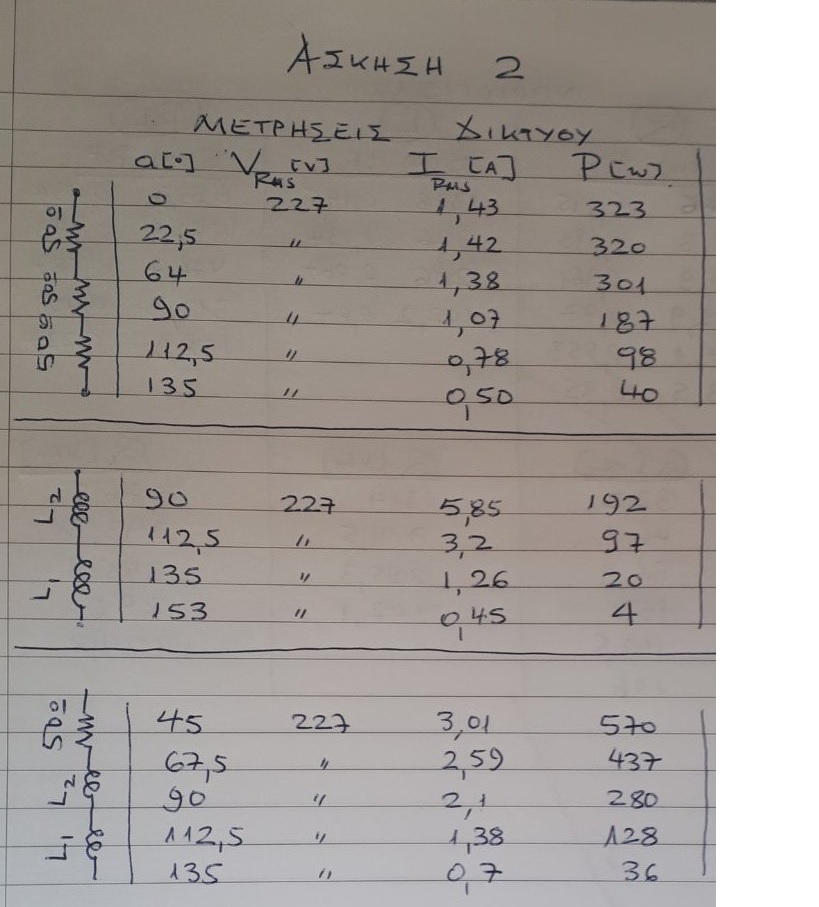 ΑΣΚΗΣΗ 2
ΜΕΤΡΗΣΕΙΣ ΔΙΚΤΥΟΥ
α[°] VRMS [V] IRMS [A] P[W]
0 227 1,43 323
22,5 " 1,42 320
64 " 1,38 301
90 " 1,07 187
112,5 " 0,78 98
135 " 0,50 40
L2
L1
90 227 5,85 192
112,5 " 3,2 97
135 " 1,26 20
153 " 0,45 4
L2
L1
45 227 3,01 570
67,5 " 2,59 437
90 " 2,1 280
112,5 " 1,38 128
135 " 0,7 36